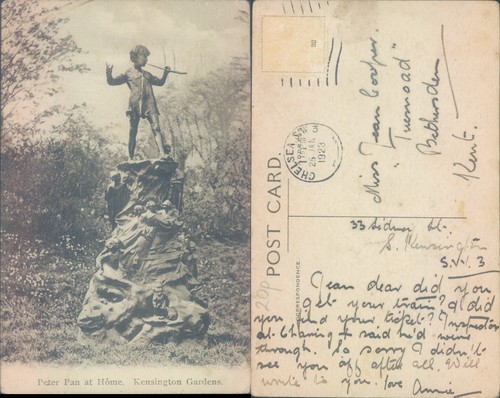 Peter Pan at Home. Kensington Gardens.
POST CARD.
CORRESPONDENCE
CHELSEA S.W.3
26 JAN
1923
Miss Jean Cooper.
"
Bethersden
Kent.
33 Sidney St.
S. Kensington
S.W. 3
20p
Jean dear did you
get your train? & did
you find your ticket? Inspector
at Charing + said he'd
through. So sorry I didn't
see you off after all. Will
write to you. love Annie